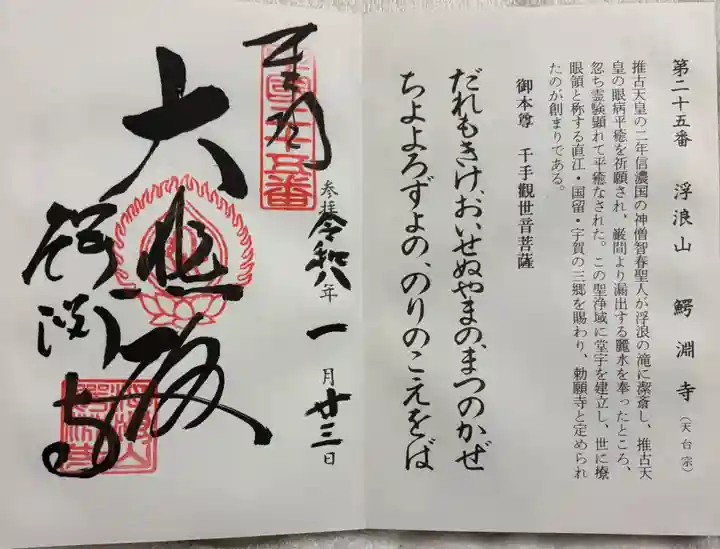 第二十五番　浮浪山　鰐淵寺（天台宗）
推古天皇の二年信濃国の神僧智春聖人が浮浪の滝に潔斎し、推古天
皇の眼病平癒を祈願され、巌間より漏出する麗水を奉ったところ、
忽ち霊験顕れて平癒なされた。この聖浄域に堂宇を建立し、世に療
眼領と称する直江・国留・宇賀の三郷を賜わり、勅願寺と定められ
たのが創まりである。
御本尊　千手観世音菩薩
だれもきけ、おいせぬやまの、まつのかぜ
ちよよろずよの、のりのこえをば
奉拝
参拝令和八年一月廿三日
大悲殿
鰐淵寺